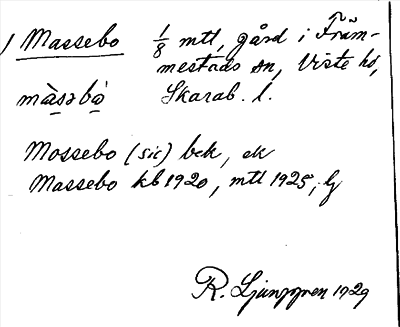 Massebo 1/8 mtl, gård i Främ-
mestads sn, Viste hd,
màsəbò Skarab. l.
Mossebo (sic) bek, ek
Massebo kb 1920, mtl 1925, lj
R. Ljunggren 1929